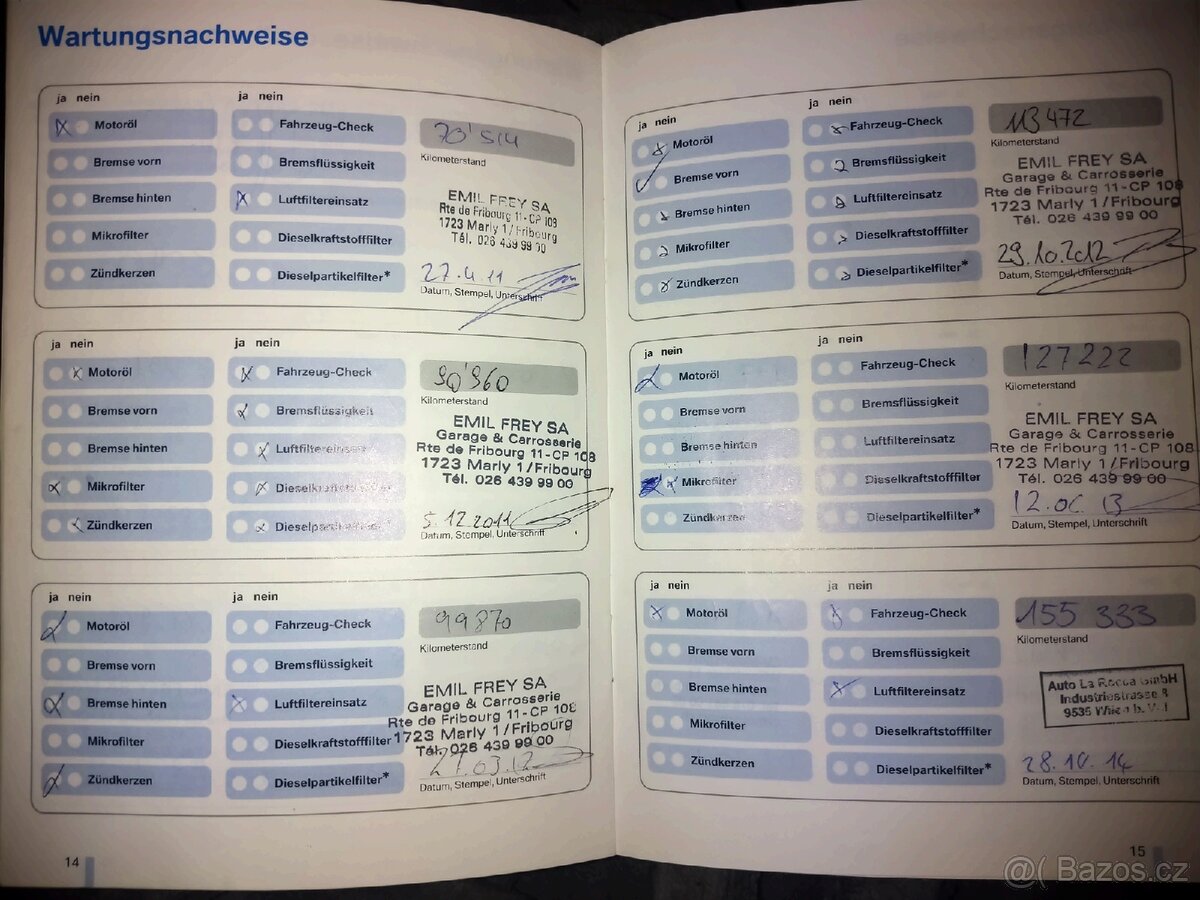 Wartungsnachweise
ja nein
ja nein
Motoröl
Fahrzeug-Check
70'514
Bremse vorn
Bremsflüssigkeit
Kilometerstand
Bremse hinten
Luftfiltereinsatz
EMIL FREY SA
Rte de Fribourg 11-CP 108
1723 Marly 1/Fribourg
Tél. 026 439 99 00
Mikrofilter
Dieselkraftstofffilter
Zündkerzen
Dieselpartikelfilter*
27.4.11
Datum, Stempel, Unterschrift
ja nein
ja nein
Motoröl
Fahrzeug-Check
90'960
Kilometerstand
Bremse vorn
Bremsflüssigkeit
EMIL FREY SA
Garage & Carrosserie
Rte de Fribourg 11-CP 108
1723 Marly 1/Fribourg
Tél. 026 439 99 00
Bremse hinten
Luftfiltereinsatz
Mikrofilter
Dieselkraftstofffilter
Zündkerzen
Dieselpartikelfilter*
5.12.2011
Datum, Stempel, Unterschrift
ja nein
ja nein
Motoröl
Fahrzeug-Check
99870
Kilometerstand
Bremse vorn
Bremsflüssigkeit
EMIL FREY SA
Garage & Carrosserie
Rte de Fribourg 11-CP 108
1723 Marly 1/Fribourg
Tél. 026 439 99 00
Bremse hinten
Luftfiltereinsatz
Mikrofilter
Dieselkraftstofffilter
Zündkerzen
Dieselpartikelfilter*
Datum, Stempel, Unterschrift
14
ja nein
ja nein
Motoröl
Fahrzeug-Check
113472
Kilometerstand
Bremse vorn
Bremsflüssigkeit
EMIL FREY SA
Garage & Carrosserie
Rte de Fribourg 11-CP 108
1723 Marly 1/Fribourg
Tél. 026 439 99 00
Bremse hinten
Luftfiltereinsatz
Mikrofilter
Dieselkraftstofffilter
Zündkerzen
Dieselpartikelfilter*
29.10.2012
Datum, Stempel, Unterschrift
ja nein
ja nein
Motoröl
Fahrzeug-Check
127222
Kilometerstand
Bremse vorn
Bremsflüssigkeit
EMIL FREY SA
Garage & Carrosserie
Rte de Fribourg 11-CP 108
1723 Marly 1/Fribourg
Tél. 026 439 99 00
Bremse hinten
Luftfiltereinsatz
Mikrofilter
Dieselkraftstofffilter
Zündkerzen
Dieselpartikelfilter*
Datum, Stempel, Unterschrift
ja nein
ja nein
Motoröl
Fahrzeug-Check
155 333
Kilometerstand
Bremse vorn
Bremsflüssigkeit
Auto La Rocca GmbH
Industriestrasse 8
Bremse hinten
Luftfiltereinsatz
Mikrofilter
Dieselkraftstofffilter
Zündkerzen
Dieselpartikelfilter*
28.10.14
Datum, Stempel, Unterschrift
15
@( Bazos.cz